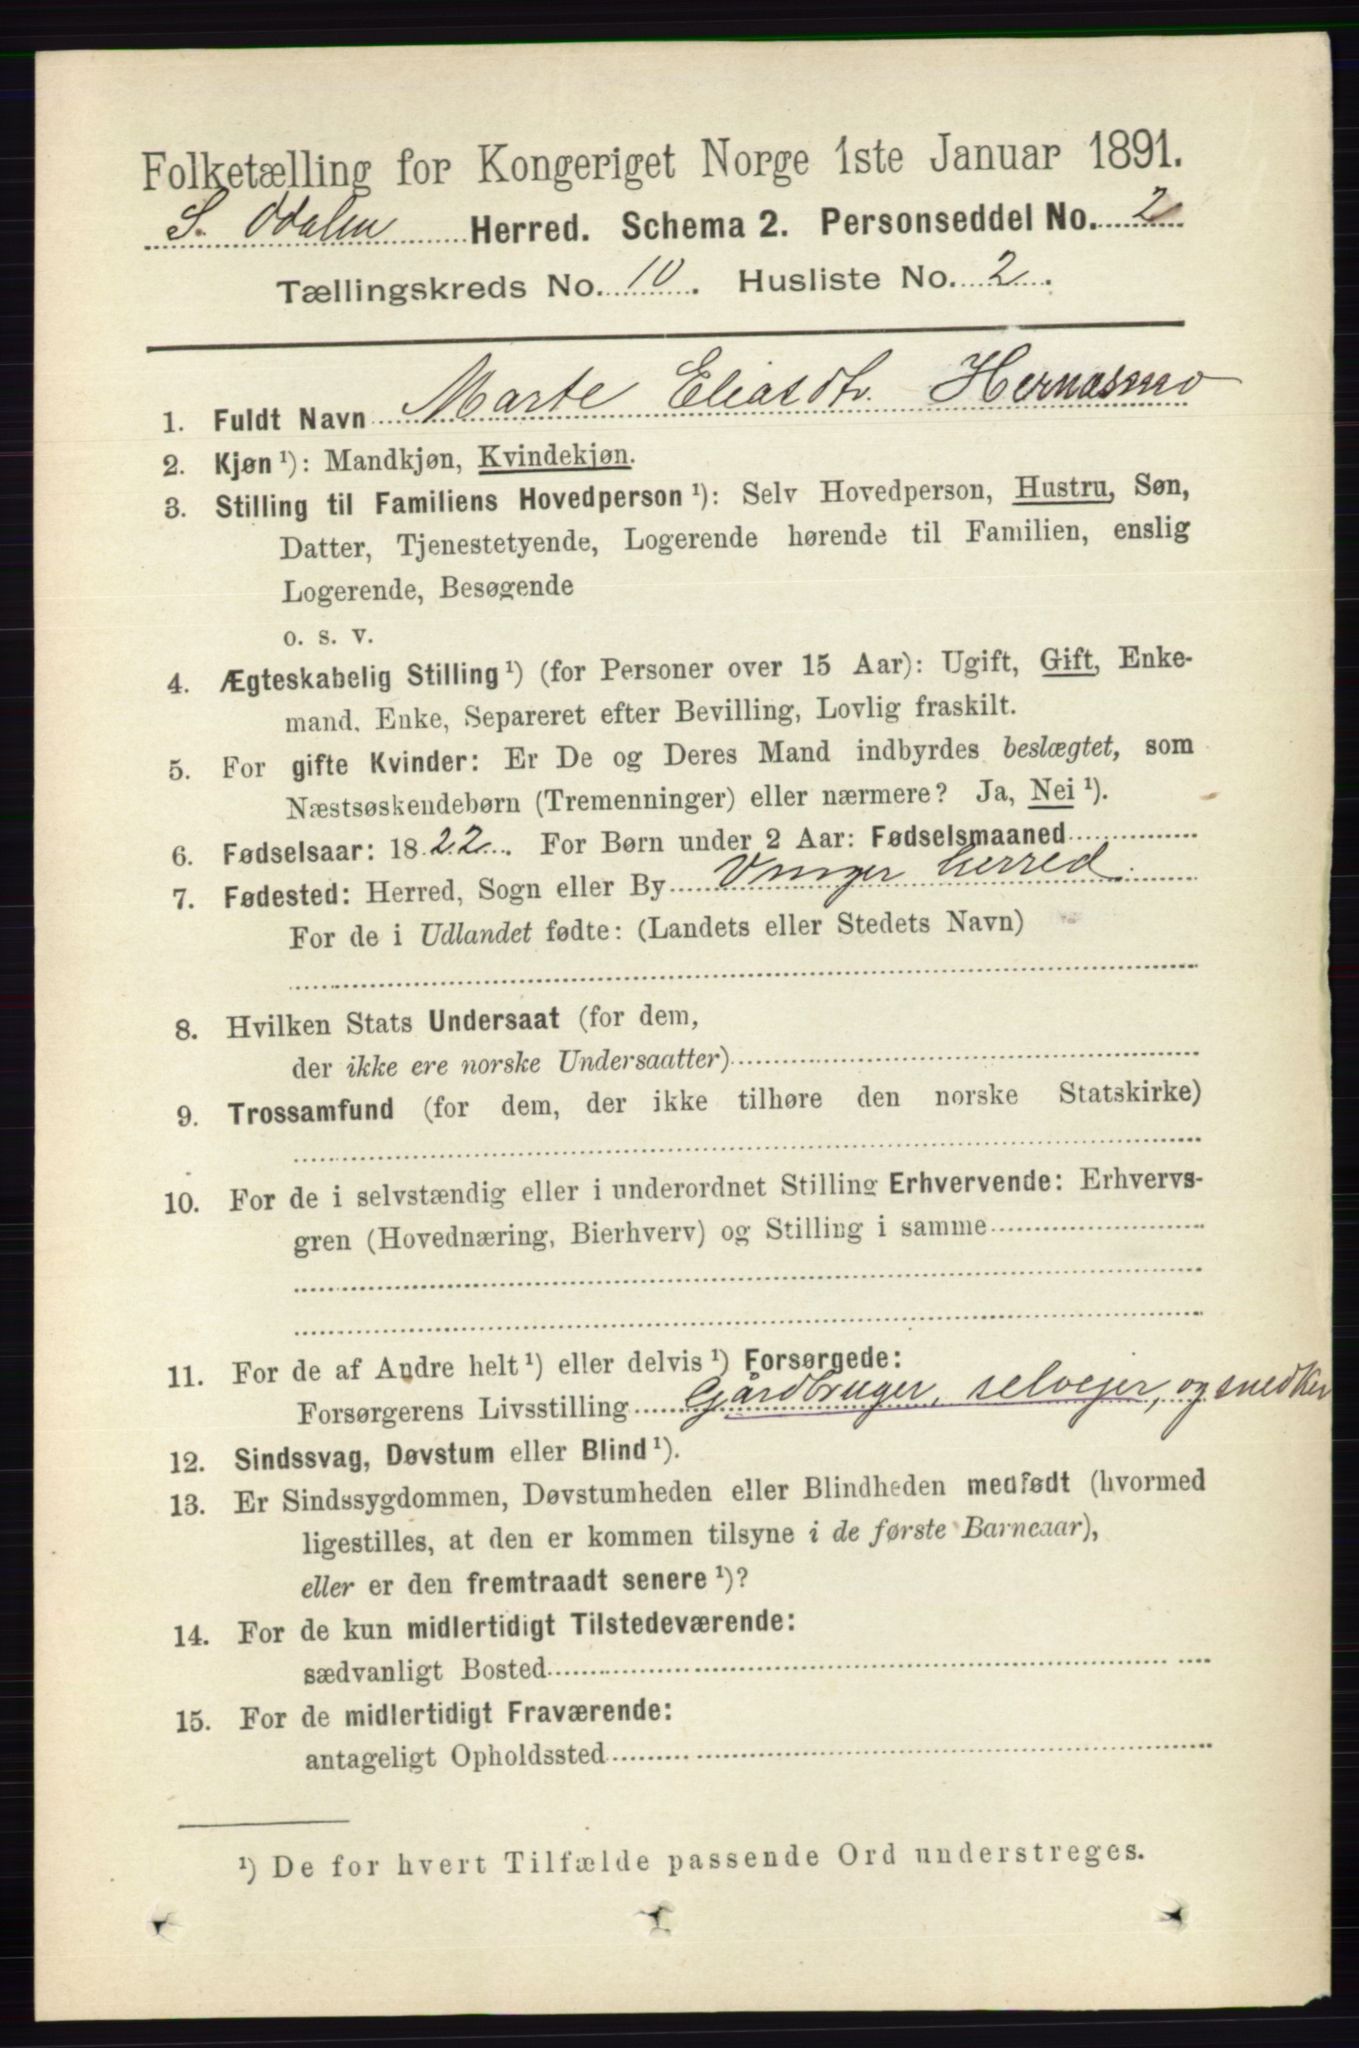 Folketælling for Kongeriget Norge 1ste Januar 1891.
S. Odalen Herred. Schema 2. Personseddel No. 2
Tællingskreds No. 10. Husliste No. 2.
1. Fuldt Navn Marte Eliasdtr. Hernasmo
2. Kjøn ¹): Mandkjøn, Kvindekjøn.
3. Stilling til Familiens Hovedperson ¹): Selv Hovedperson, Hustru, Søn,
Datter, Tjenestetyende, Logerende hørende til Familien, enslig
Logerende, Besøgende
o. s. v.
4. Ægteskabelig Stilling ¹) (for Personer over 15 Aar): Ugift, Gift, Enke-
mand, Enke, Separeret efter Bevilling, Lovlig fraskilt.
5. For gifte Kvinder: Er De og Deres Mand indbyrdes beslægtet, som
Næstsøskendebørn (Tremenninger) eller nærmere? Ja, Nei ¹).
6. Fødselsaar: 1822. For Børn under 2 Aar: Fødselsmaaned
7. Fødested: Herred, Sogn eller By Vinger herred.
For de i Udlandet fødte: (Landets eller Stedets Navn)
8. Hvilken Stats Undersaat (for dem,
der ikke ere norske Undersaatter)
9. Trossamfund (for dem, der ikke tilhøre den norske Statskirke)
10. For de i selvstændig eller i underordnet Stilling Erhvervende: Erhvervs-
gren (Hovednæring, Bierhverv) og Stilling i samme
11. For de af Andre helt ¹) eller delvis ¹) Forsørgede:
Forsørgerens Livsstilling Gårdbruger, selvejer, og snedker
12. Sindssvag, Døvstum eller Blind ¹).
13. Er Sindssygdommen, Døvstumheden eller Blindheden medfødt (hvormed
ligestilles, at den er kommen tilsyne i de første Barneaar),
eller er den fremtraadt senere ¹)?
14. For de kun midlertidigt Tilstedeværende:
sædvanligt Bosted
15. For de midlertidigt Fraværende:
antageligt Opholdssted
¹) De for hvert Tilfælde passende Ord understreges.